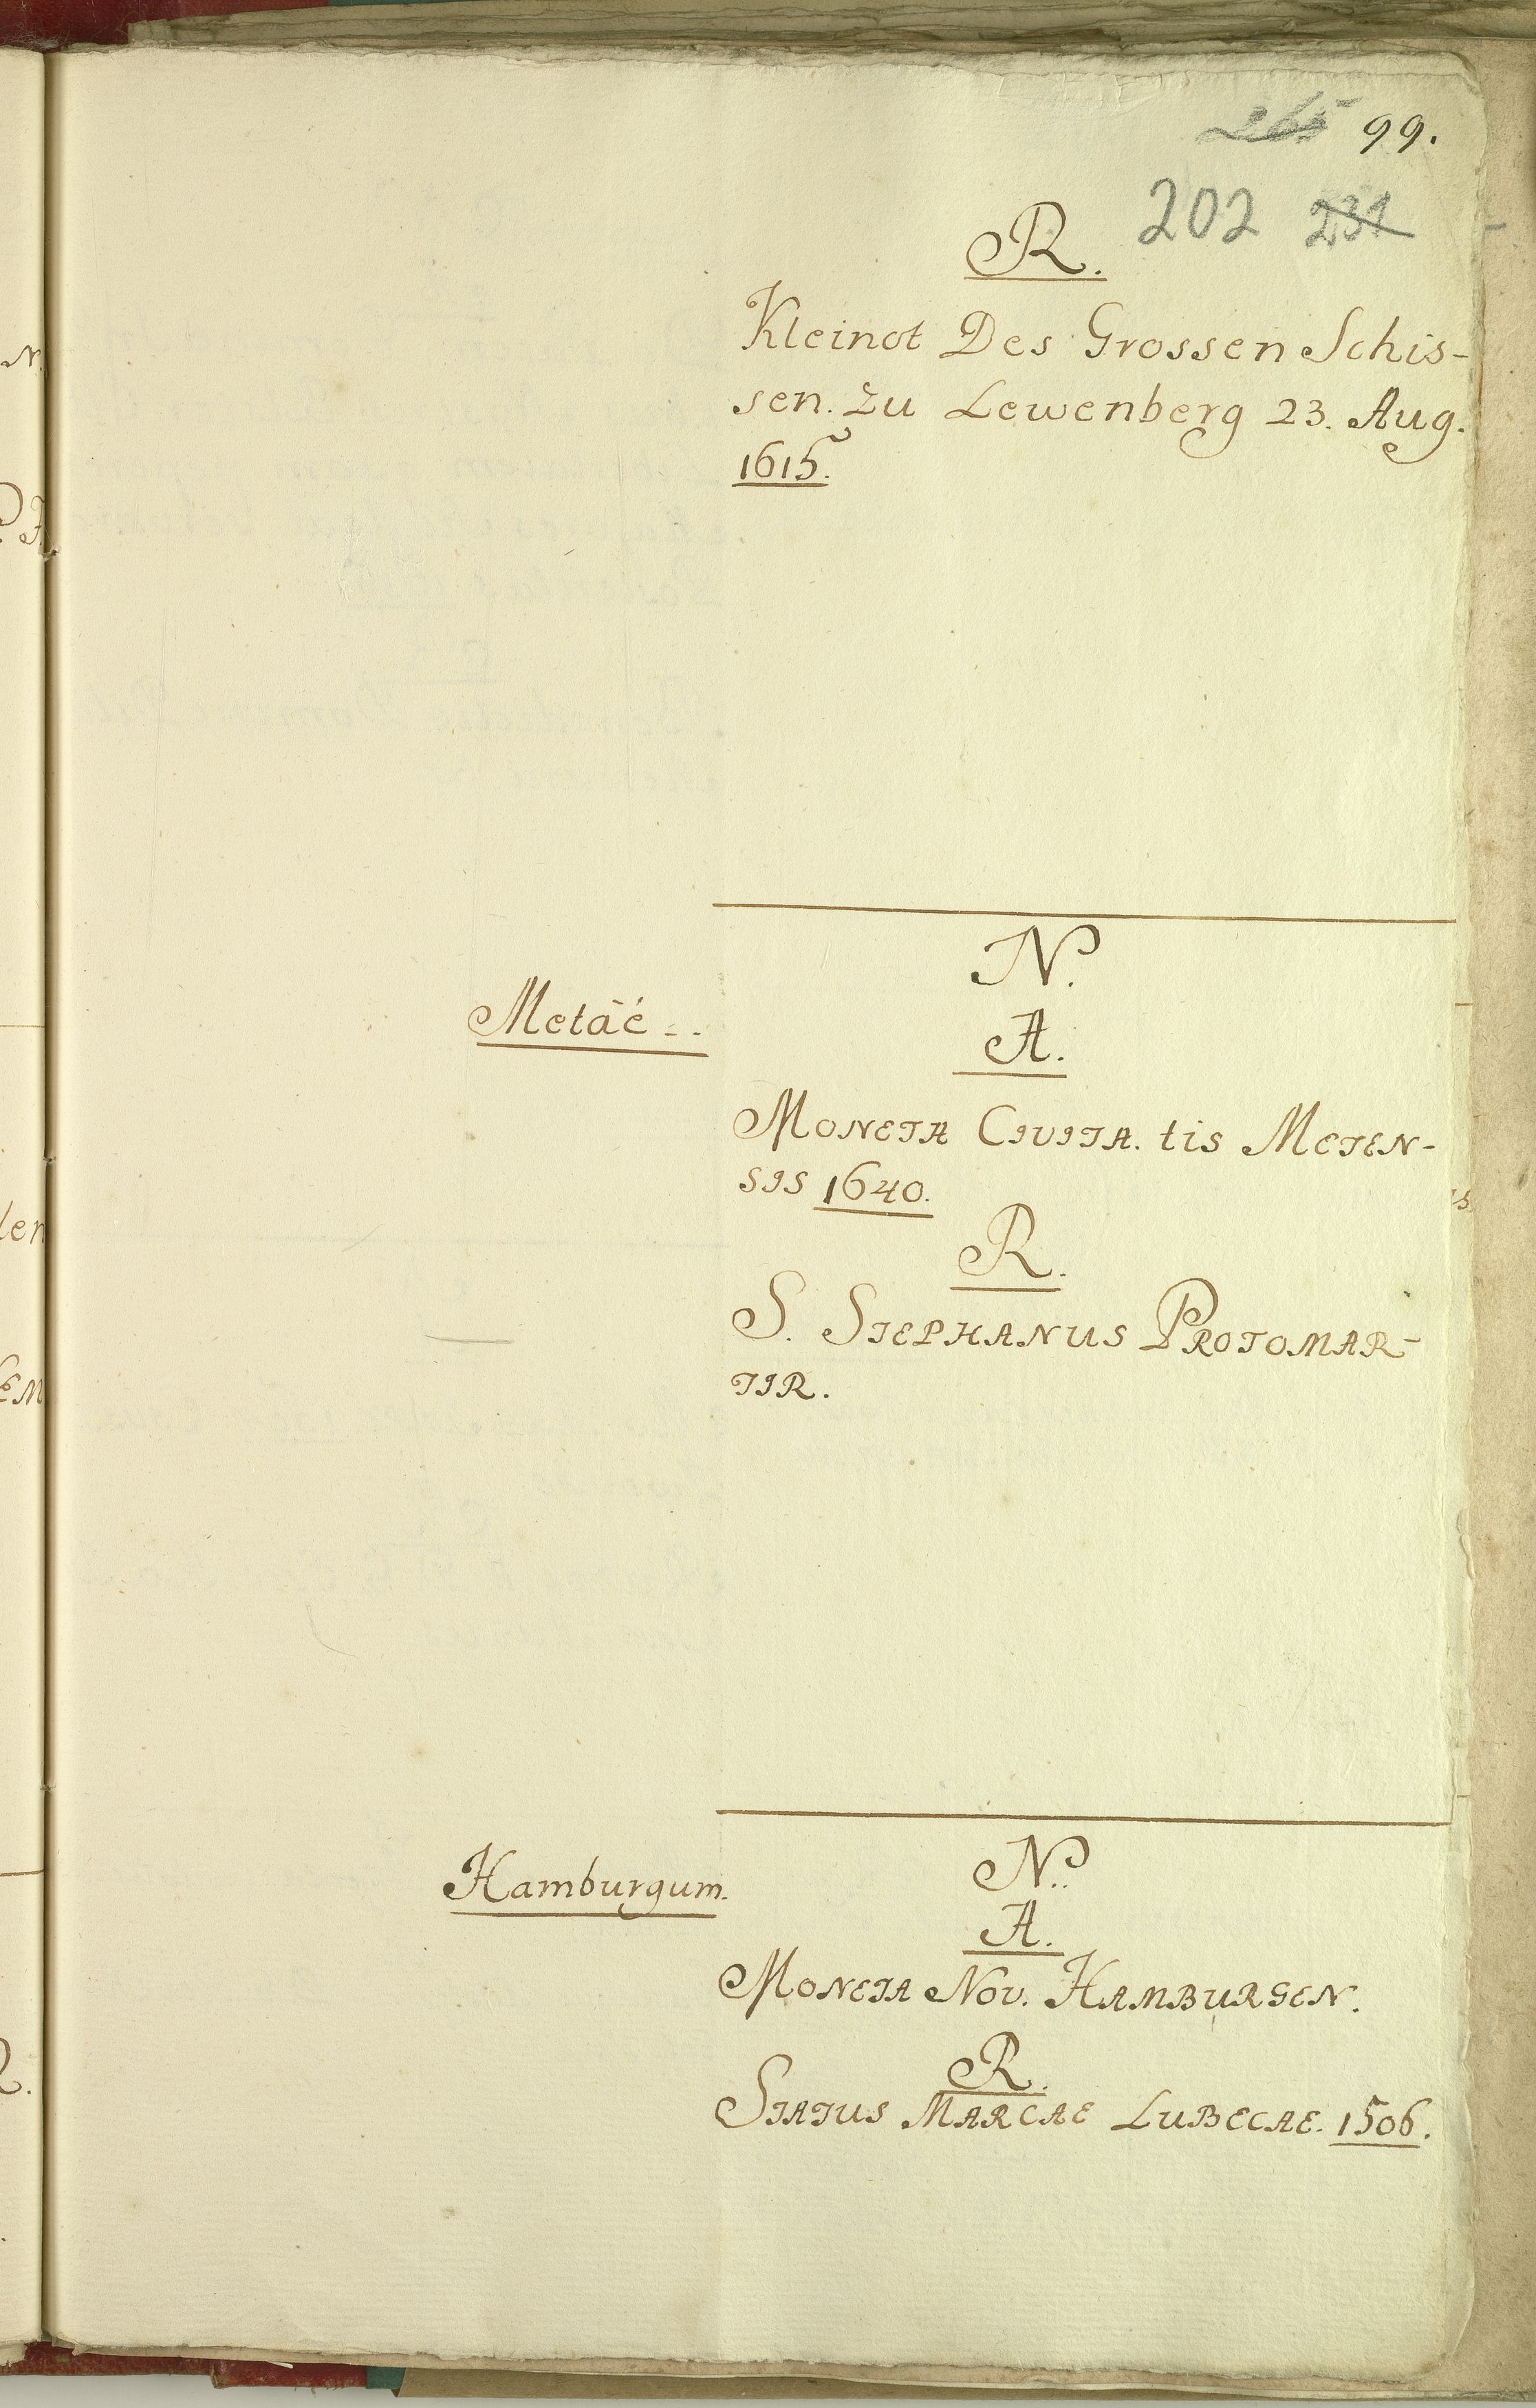 265 99.
202 231
R.
Kleinot Des Grossen Schis-
sen. zu Lewenberg 23. Aug.
1615.
N.
Metäé..
A.
MONETA CIVITA. tis METEN-
SIS 1640.
R.
S. STEPHANUS PROTOMAR-
TIR.
N.
Hamburgum.
A.
MONETA Nov. HAMBURGEN.
R.
STATUS MARCAE LUBECAE. 1506.